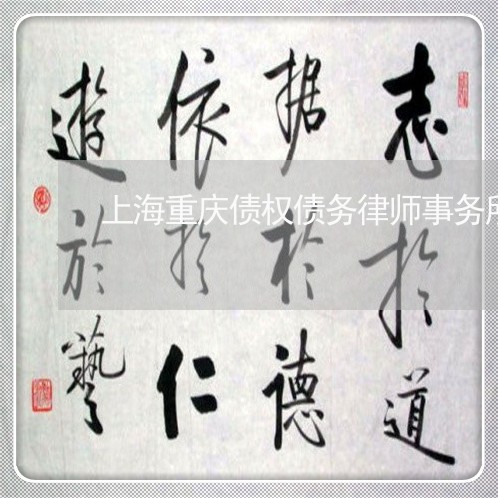 志於道
据於德
依於仁
遊於藝
上海重庆债权债务律师事务所